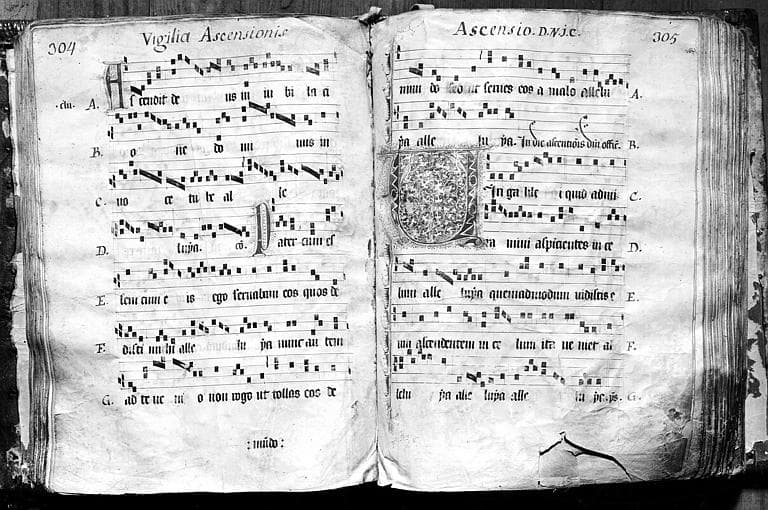 304 Vigilia Ascensionis
A. Ascendit de us in iu bi la ci
B. o ne do mi nus in
C. uo ce tu be al le
D. luya. cō. Pater cum es
E. sem cum e is ego seruabam eos quos de
F. disti michi alle lu ya nunc au tem
G. ad te ue ni o non rogo ut tollas eos de
: mūdo :
Ascensio. D.N.J.C. 305
mun do sed ut serues eos a malo allelu A.
ya alle lu ya. In die ascentiōis dn̄i offic̄. B.
Uiri ga lile i quid admi C.
ra mini aspicientes in ce D.
lum alle luya quemadmodum uidistis e E.
um ascendentem in ce lum ita ue niet al F.
lelu ya alle luya alle lu ya. G.